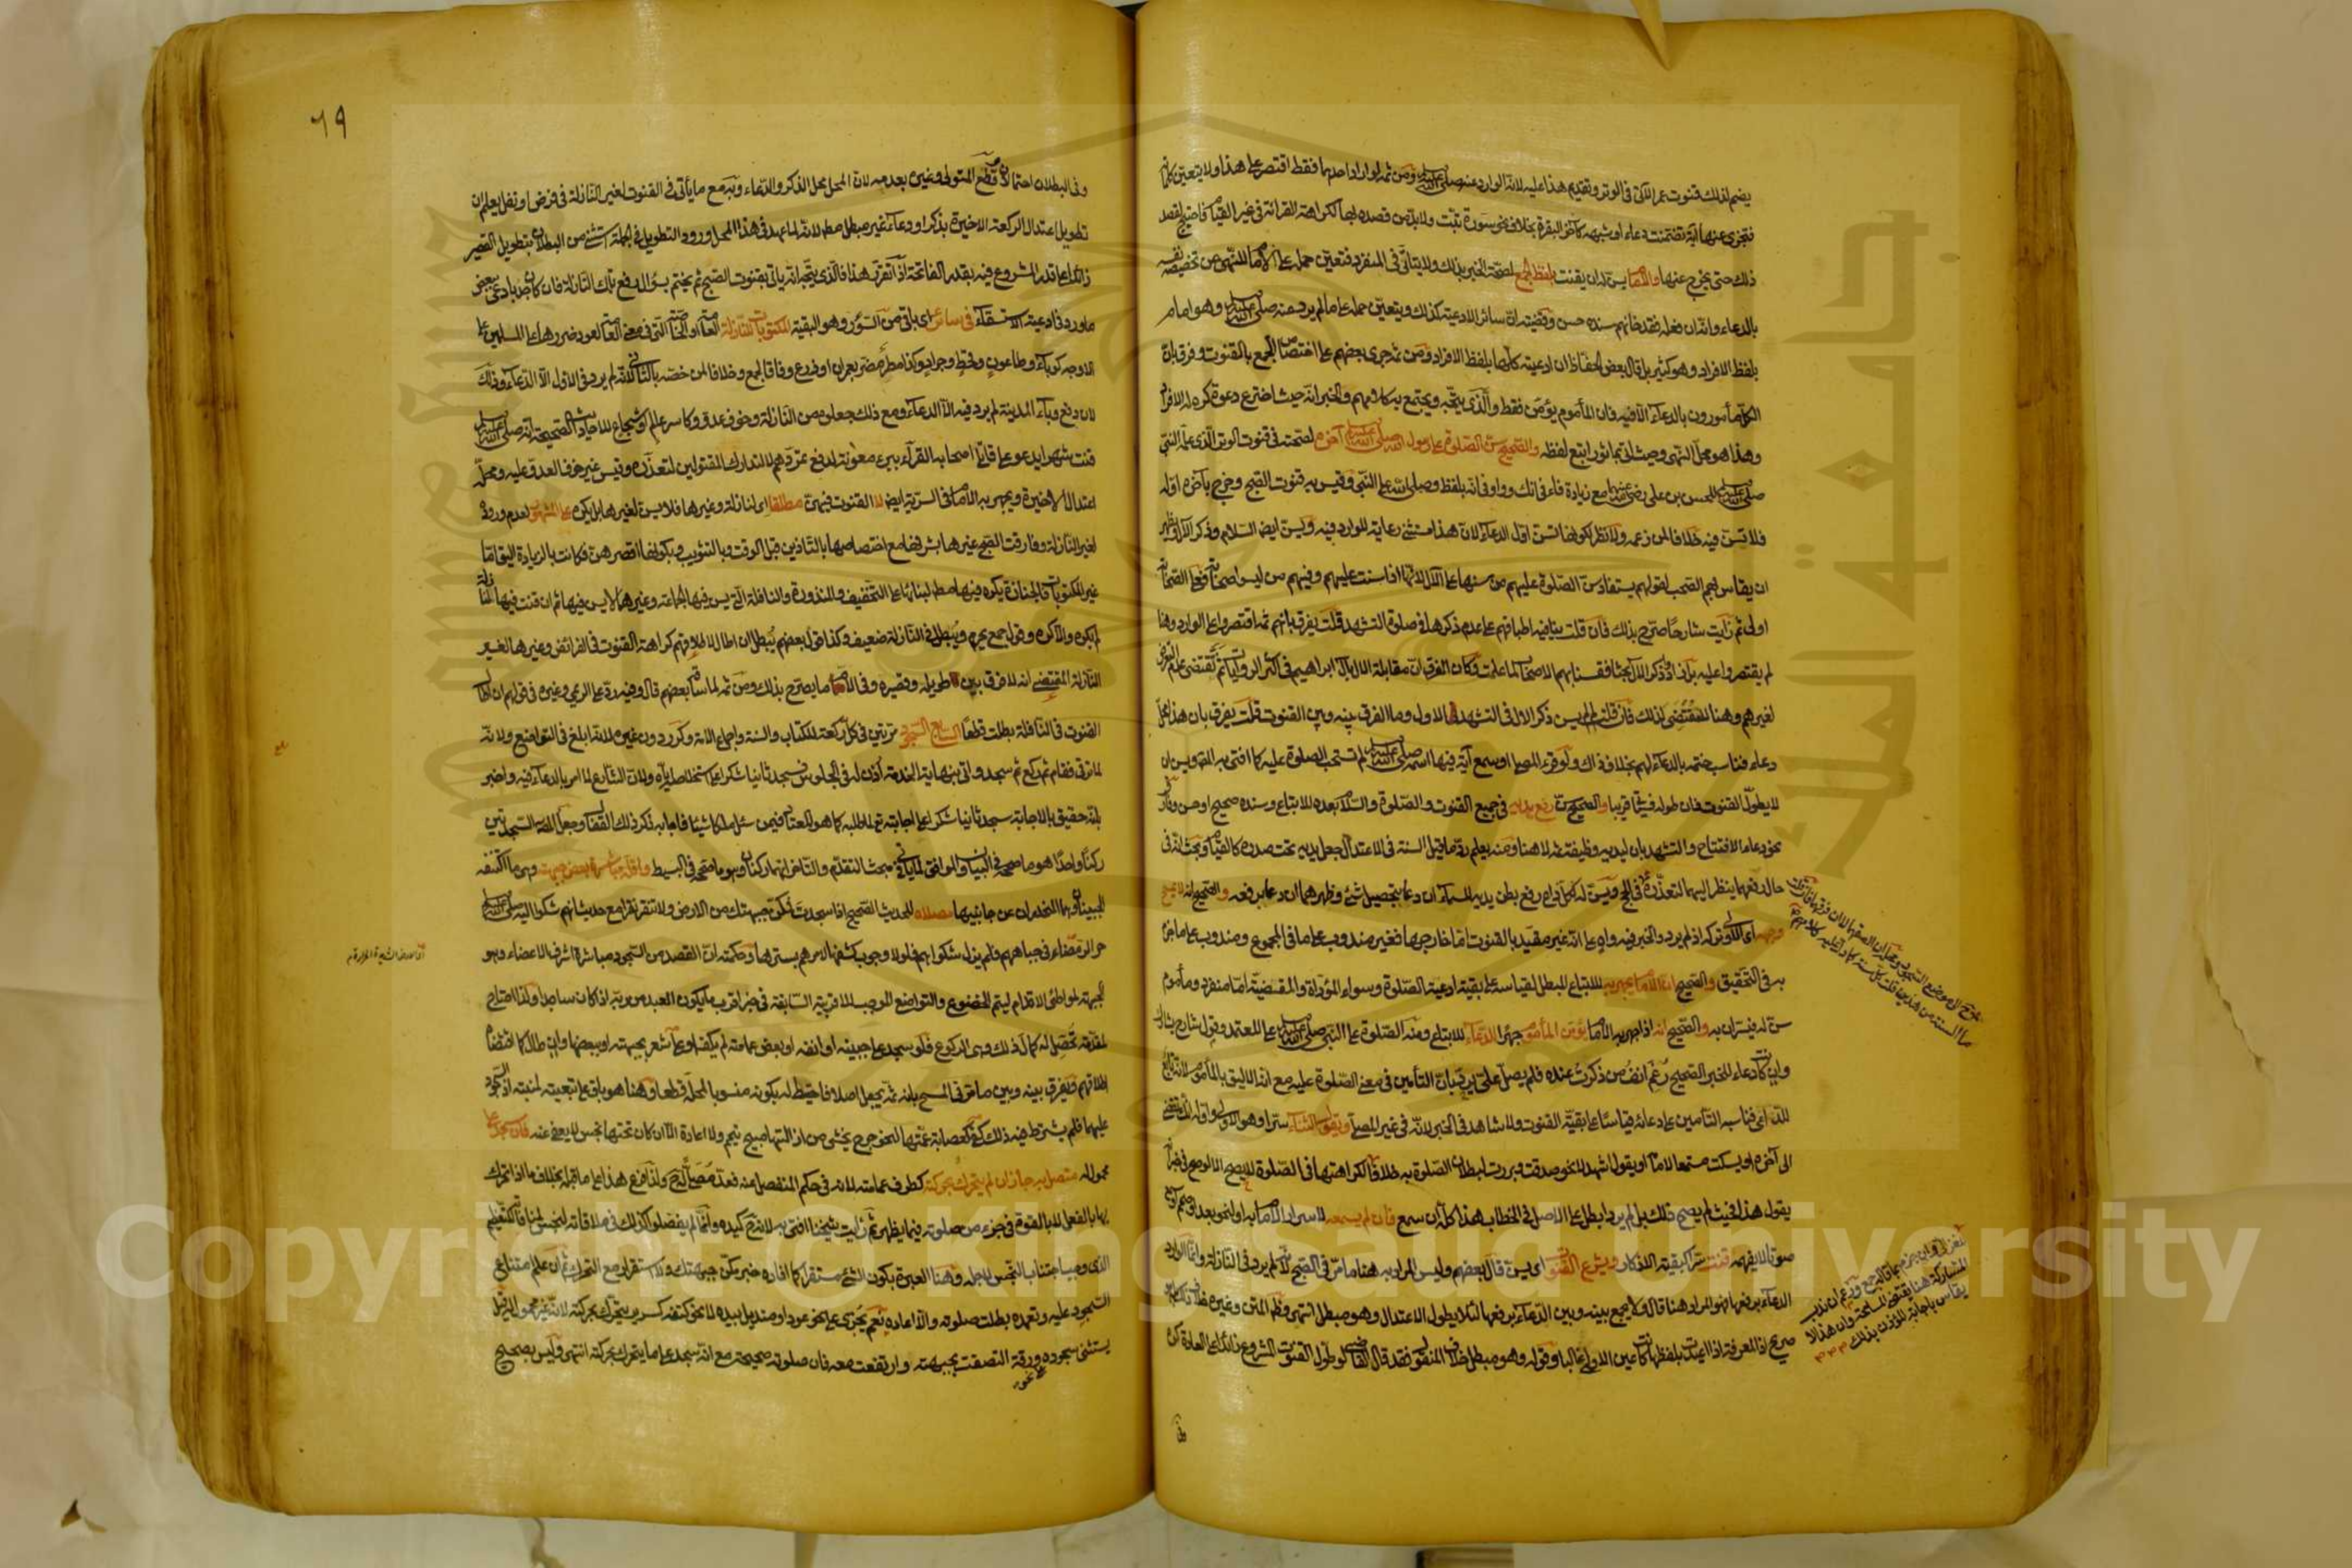 يضم لذلك قنوت عمر الآتي في الوتر وتقديم هذا عليه لأنه الوارد عنه صلى الله عليه وسلم ومن ثم لو أراد احدهما فقط اقتصر على هذا ولا يتعين كلماته
فتجزي عنها آية تضمنت دعاء او شبهه كآخر البقرة بخلاف نحو سورة تبت ولا بد من قصده بها لكراهة القراءة في غير القيام فاحتيج لقصد
ذلك حتى يخرج عنها والامام يسن له ان يقنت بلفظ الجمع لصحة الخبر بذلك ولا يتأتى في المنفرد فتعين حمله على الامام للنهي عن تخصيصه نفسه
بالدعاء وانه ان فعله فقد خانهم سنده حسن وقضيته ان سائر الادعية كذلك ويتعين حمله على ما لم يرد عنه صلى الله عليه وسلم وهو امام
بلفظ الافراد وهو كثير بل قال بعض الحفاظ ان ادعيته كلها بلفظ الافراد ومن ثم جرى بعضهم على اختصاص الجمع بالقنوت وفرق بان
الكل مأمورون بالدعاء الا فيه فان المأموم يؤمن فقط والذي يتجه ويجتمع به كلامهم والخبر انه حيث اخترع دعوة كره له الافراد
وهذا هو محل النهي وحيث اتى بمأثور اتبع لفظه والصحيح سن الصلوة على رسول الله صلى الله عليه وسلم آخره لصحته في قنوت الوتر الذي علمه النبي
صلى الله عليه وسلم للحسن بن علي رضي الله عنهما مع زيادة فاء في انك وواو في انه بلفظ وصلى الله على النبي وقيس به قنوت الصبح وخرج بآخره اوله
فلا تسن فيه خلافا لمن زعمه ولا نظر لكونها تسن اول الدعاء لان هذا مستثنى رعاية للوارد فيه ويسن ايضا السلام وذكر الآل ويظهر
ان يقاس بهم الصحب لقولهم يستفاد سن الصلوة عليهم من سنها على الآل لانها اذا سنت عليهم وفيهم من ليسوا صحابة فعلى الصحابة
اولى ثم رأيت شارحا صرح بذلك فان قلت ينافيه اطباقهم على عدم ذكرها في صلوة التشهد قلت يفرق بانهم ثمه اقتصروا على الوارد وهنا
لم يقتصروا عليه بل زادوا ذكر الآل بحثا فقسنا بهم الاصحاب لما علمت وكان الفرق ان مقابلة الآل بآل ابراهيم في اكثر الروايات ثم تقتضي عدم التعرض
لغيرهم وهنا لا مقتضي لذلك فان قلت لم لم يسن ذكر الآل في التشهد الاول وما الفرق بينه وبين القنوت قلت يفرق بان هذا محل
دعاء فناسب ختمه بالدعاء لهم بخلاف ذاك ولو قرء المصلي او سمع آية فيها اسمه صلى الله عليه وسلم لم تستحب الصلوة عليه كما افتى به النووي ويسن ان
لا يطول القنوت فان طوله فسيأتي قريبا والصحيح سن رفع يديه في جميع القنوت والصلوة والسلام بعده للاتباع وسنده صحيح او حسن وفارق
نحو دعاء الافتتاح والتشهد بان ليديه وظيفة ثم لا هنا ومنه يعلم رد ما قيل السنة في الاعتدال جعل يديه تحت صدره كالقيام وبحث انه في
حال رفعهما ينظر اليهما لتعذره في محل السجود ويسن له كلكل داع رفع بطن يديه للسماء ان دعا بتحصيل شئ وظهرهما ان دعا برفعه والصحيح انه لا يمسح
وجهه اي الاولى تركه اذ لم يرد والخبر فيه واه على انه غير مقيد بالقنوت اما خارجها فغير مندوب على ما في المجموع ومندوب على ما جزم
به في التحقيق والصحيح ان الامام يجهر به للاتباع المبطل لقياسه على بقية ادعية الصلوة وسواء المؤداة والمقضية اما منفرد ومأموم
سن له فيسران به والصحيح انه اذا جهر به الامام يؤمن المأموم جهرا للدعاء للاتباع ومنه الصلوة على النبي صلى الله عليه وسلم على المعتمد وقول شارح يشارك
وان كانت دعاء للخبر الصحيح رغم انف من ذكرت عنده فلم يصل علي يرد بان التأمين في معنى الصلوة عليه مع انه الاليق بالمأموم لانه تابع
للداعي فناسبه التأمين على دعائه قياسا على بقية القنوت ولا شاهد في الخبر لانه في غير المصلي ويقول الثناء سرا وهو الاولى واوله انك تقضي
الى آخره او يسكت مستمعا لامامه او يقول اشهد لا نحو صدقت وبررت لبطلان الصلوة به خلافا
يقول هذا فحيث لم يصح ذلك بل لم يرد ابطل على الاصل في الخطاب هذا كله ان سمع فان لم يسمعه لاسرار الامام به او لنحو بعد او صمم او سمع
صوتا لا يفهمه قنت سرا كبقية الاذكار ويشرع القنوت اي يسن قال بعضهم وليس المراد به هنا ما مر في الصبح لانه لم يرد في النازلة وانما الوارد
الدعاء برفعها فهو المراد هنا قال ولا يجمع بينه وبين الدعاء برفعها لئلا يطول الاعتدال وهو مبطل انتهى وظاهر المتن وغيره خلاف ذلك بل هو
صريح اذ المعرفة اذا اعيدت بلفظها كانت عين الاولى غالبا وقوله وهو مبطل خلاف المنقول فقد قال القاضي لو طول القنوت المشروع زائدا على العادة كره
وفي
٦٩
وفي البطلان احتمالان وقطع المتولي وغيره بعدمه لان المحل محل الذكر والدعاء وبه مع ما يأتي في القنوت لغير النازلة في فرض او نفل يعلم ان
تطويل اعتدال الركعة الاخيرة بذكر او دعاء غير مبطل مطلقا لانه لما عهد في هذا المحل ورود التطويل في الجملة استثني من البطلان بتطويل القصير
زائدا على قدر المشروع فيه بقدر الفاتحة اذا تقرر هذا فالذي يتجه انه يأتي بقنوت الصبح ثم يختم بسؤال رفع تلك النازلة فان كانت جدبا دعى ببعض
ما ورد في ادعية الاستسقاء في سائر اي باقي من السؤر وهو البقية المكتوبات للنازلة العامة او الخاصة التي في معنى العامة لعود ضررها على المسلمين على
الاوجه كوباء وطاعون وقحط وجراد وكذا مطر مضر بعمران او زرع وفاقا لجمع وخلافا لمن خصه بالثاني لانه لم يرد في الاول الا الدعاء وذلك
لان رفع وباء المدينة لم يرد فيه الا الدعاء ومع ذلك جعلوه من النازلة وخوف عدو وكاسر عالم او شجاع للاحاديث الصحيحة انه صلى الله عليه وسلم
قنت شهرا يدعو على قاتلي اصحابه القراء ببئر معونة لدفع تمردهم لا لتدارك المقتولين لتعذره وقيس غير خوف العدو عليه ومحله
اعتدال الاخيرة ويجهر به الامام في السرية ايضا لا القنوت فيهن مطلقا اي لنازلة وغيرها فلا يسن لغيرها بل يكره على المشهور لعدم وروده
لغير النازلة وفارقت الصبح غيرها بشرفها مع اختصاصها بالتأذين قبل الوقت وبالتثويب وبكونها اقصرهن فكانت بالزيادة اليق اما
غير المكتوبات فالجنازة يكره فيها مطلقا لبنائها على التخفيف والمنذورة والنافلة التي يسن فيها الجماعة وغيرهما لا يسن فيها ثم ان قنت فيها لنازلة
لم يكره والا كره وقول جمع يحرم ويبطل في النازلة ضعيف وكذا قول بعضهم يبطل ان اطال لاطلاقهم كراهة القنوت في الفرائض وغيرها لغير
النازلة المقتضي انه لا فرق بين طويله وقصيره وفي الام ما يصرح بذلك ومن ثم لما ساقه بعضهم قال وفيه رد على الريمي وغيره في قولهم ان اطال
القنوت في النافلة بطلت قطعا السابع السجود مرتين في كل ركعة للكتاب والسنة واجماع الامة وكرر دون غيره لانه ابلغ في التواضع ولانه
لما ترقى فقام ثم ركع ثم سجد واتى بنهاية الخدمة اذن له في الجلوس فسجد ثانيا شكرا على استخلاصه اياه ولان الشارع لما امر بالدعاء فيه واخبر
بانه حقيق بالاجابة سجد ثانيا شكرا على اجابته تعالى لما طلبه كما هو المعتاد فيمن سئل ملكا شيئا فاجابه ذكر ذلك القفال وجعل السجدتين
ركنا واحدا هو ما صححه في البيان والموافق لما يأتي في مبحث التقدم والتأخر انهما ركنان وهو ما صححه في البسيط واقله مباشرة بعض جبهته وهي ما اكتنفه
الجبينان وهما المنحدران عن جانبيها مصلاه للحديث الصحيح اذا سجدت فمكن جبهتك من الارض ولا تنقر نقرا مع حديث انهم شكوا اليه صلى الله عليه وسلم
حر الرمضاء في جباههم فلم يزل شكواهم فلولا وجوب كشفها لامرهم بسترها وحكمته ان القصد من السجود مباشرة اشرف الاعضاء وهو
الجبهة لمواطئ الاقدام ليتم الخضوع والتواضع الموجب للاقربية السابقة في خبر اقرب ما يكون العبد من ربه اذا كان ساجدا ولذا احتاج
لمقدمة تحصل له كمال ذلك وهي الركوع فلو سجد على جبينه او انفه او بعض عمامته لم يكف او على شعر بجبهته او ببعضها وان طال كما اقتضاه
اطلاقهم ويفرق بينه وبين ما مر في المسح بانه ثم يجعل اصلا فاحتيط له بكونه منسوبا لمحله قطعا وهنا هو باق على تبعيته لمنبته اذ السجود
عليهما فلم يشترط فيه ذلك كفى كعصابة عمتها لنحو جرح يخشى من ازالتها مبيح تيمم ولا اعادة الا ان كان تحتها نجس لا يعفى عنه فان سجد على
محمول له متصل به جاز ان لم يتحرك بحركته كطرف عمامته لانه في حكم المنفصل عنه فعد مصلى له
بها بالفعل لا بالقوة في جزء من صلوته فيما يظهر ثم رأيت شيخنا افتى به لانه حينئذ كيده وانما لم يفصلوا كذلك في ملاقاته لنجس لمنافاته لتعظيم
الذي وجب اجتناب النجس لاجله وهنا العبرة بكون الشئ مستقرا كما افاده خبر مكن جبهتك ولا استقرار مع التحرك ثم ان علم امتناع
السجود عليه وتعمده بطلت صلوته والا اعاده نعم يجزي على نحو عود او منديل بيده لا نحو كتفه كسرير يتحرك بحركته لانه غير محمول له وقيل
يستثنى سجوده على نحو ورقة التصقت بجبهته وارتفعت معه فان صلوته صحيحة مع انه سجد على ما يتحرك بحركته انتهى وليس بصحيح
Copyright © King Saud University